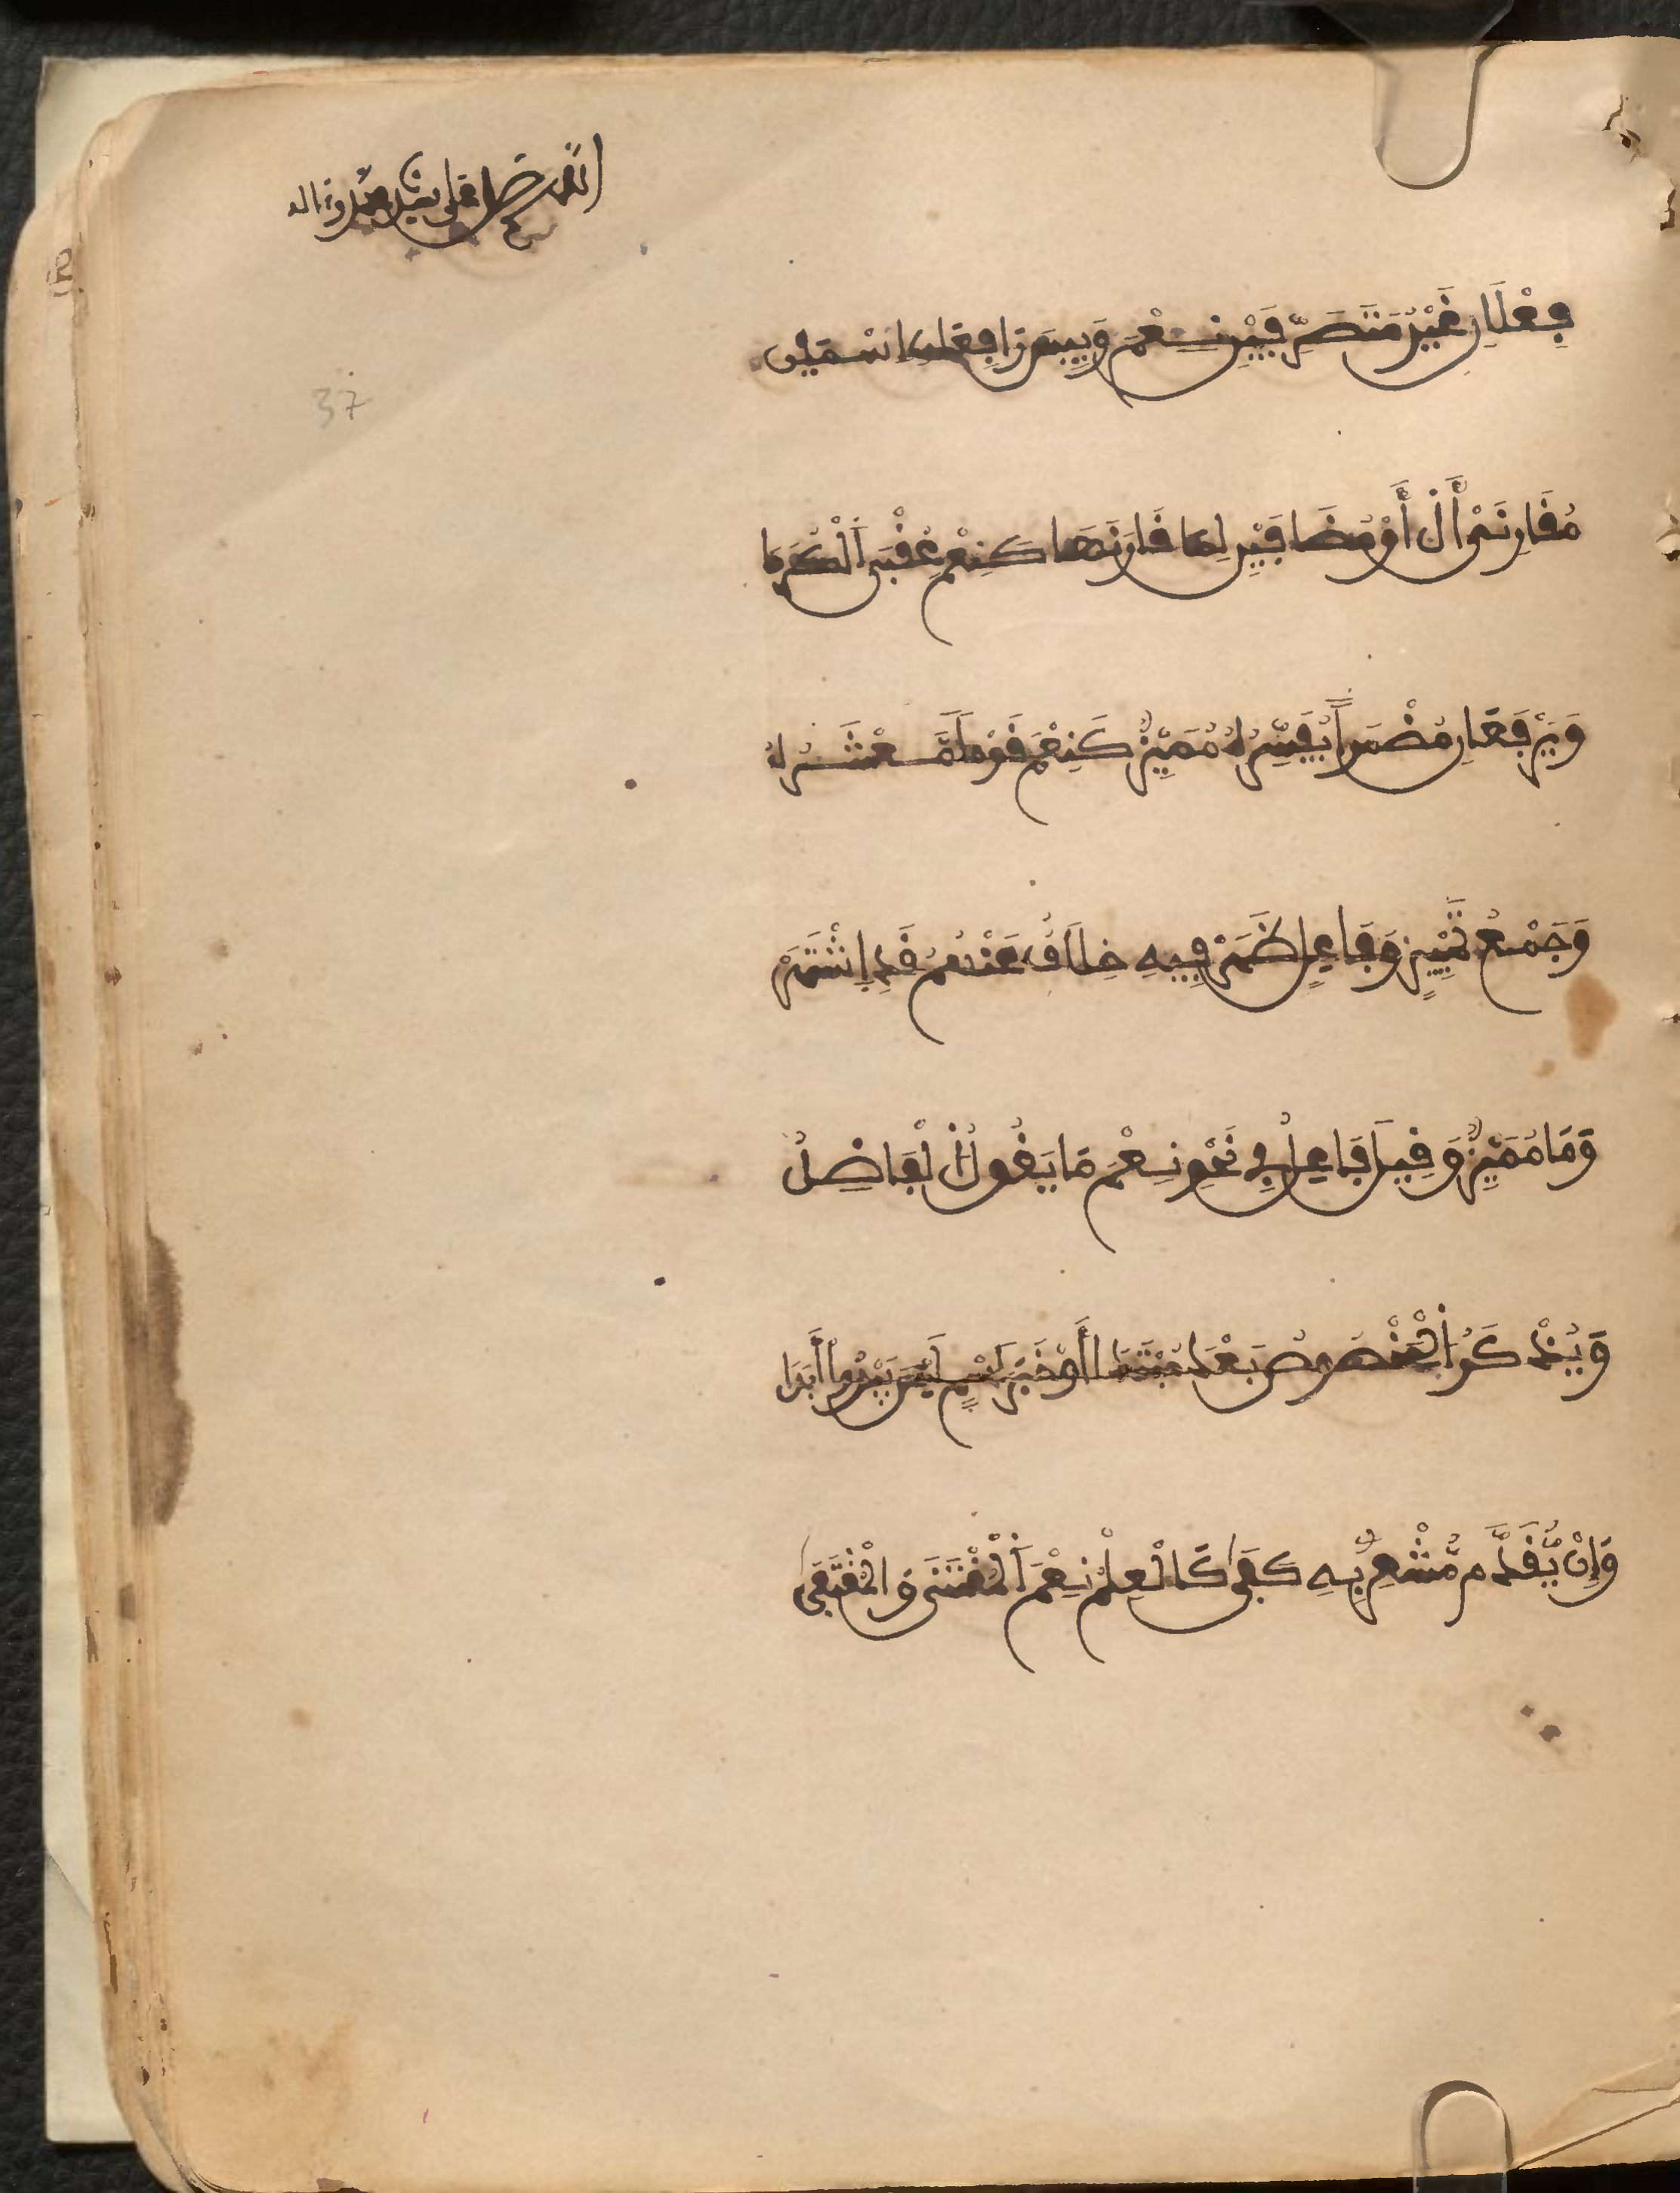 اللهم صل على سيدنا محمد وءاله
37
فِعْلَانِ غَيْرُ مُتَصَرِّفَيْنِ نِعْمَ وَبِيسَ رَافِعَانِ اسْمَيْنِ
مُقَارِنَيْ أَلْ أَوْ مُضَافَيْنِ لِمَا قَارَنَهَا كَنِعْمَ عُقْبَى ٱلْكُرَمَا
وَيَرْفَعَانِ مُضْمَراً يُفَسِّرُهُ مُمَيِّزٌ كَنِعْمَ قَوْماً مَّعْشَرُهُ
وَجَمْعُ تَمْيِيزٍ وَفَاعِلٍ ظَهَرْ فِيهِ خِلَافٌ عَنْهُمْ قَدِ إِشْتَهَرْ
وَمَا مُمَيِّزٌ وَقِيلَ فَاعِلُ فِي نَحْوِ نِعْمَ مَا يَقُولُ ٱلْفَاضِلُ
وَيُذْكَرُ ٱلْمَخْصُوصُ بَعْدُ مُبْتَدَا أَوْ خَبَرَ اسْمٍ لَيْسَ يَبْدُو أَبَدَا
وَإِنْ يُّقَدَّم مُّشْعِرٌ بِهِ كَفَى كَالْعِلْمُ نِعْمَ ٱلْمُقْتَنَى وَالْمُقْتَفَى